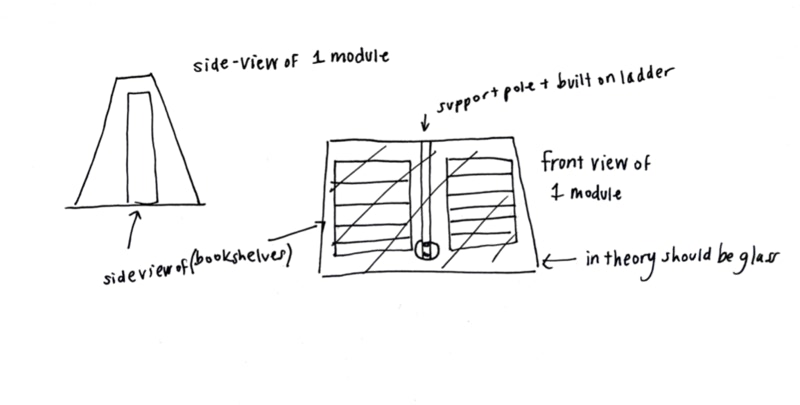 side-view of 1 module
support pole + built on ladder
front view of
1 module
side view of (bookshelves)
in theory should be glass